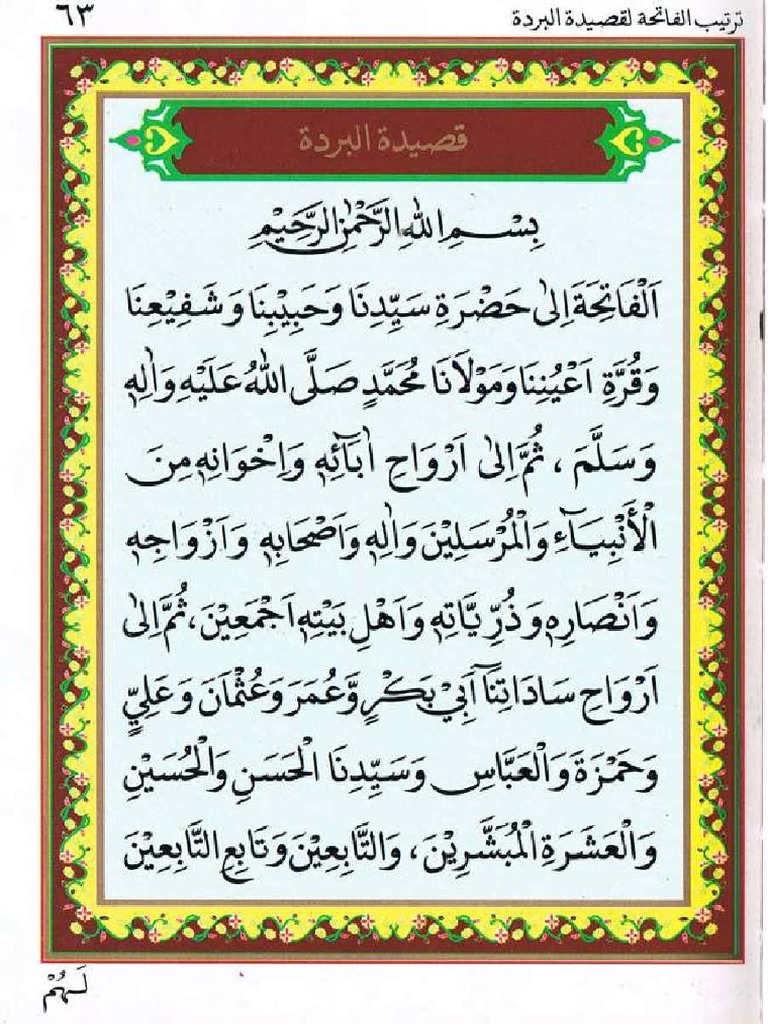 ترتيب الفاتحة لقصيدة البردة
٦٣
قصيدة البردة
بِسْمِ اللهِ الرَّحْمٰنِ الرَّحِيْمِ
اَلْفَاتِحَةَ اِلٰى حَضْرَةِ سَيِّدِنَا وَحَبِيْبِنَا وَشَفِيْعِنَا
وَقُرَّةِ اَعْيُنِنَا وَمَوْلَانَا مُحَمَّدٍ صَلَّى اللهُ عَلَيْهِ وَاٰلِهٖ
وَسَلَّمَ ، ثُمَّ اِلٰى اَرْوَاحِ اٰبَآئِهٖ وَاِخْوَانِهٖ مِنَ
الْأَنْبِيَآءِ وَالْمُرْسَلِيْنَ وَاٰلِهٖ وَاَصْحَابِهٖ وَاَزْوَاجِهٖ
وَاَنْصَارِهٖ وَذُرِّيَّاتِهٖ وَاَهْلِ بَيْتِهٖ اَجْمَعِيْنَ، ثُمَّ اِلٰى
اَرْوَاحِ سَادَاتِنَآ اَبِيْ بَكْرٍ وَّعُمَرَ وَعُثْمَانَ وَعَلِيٍّ
وَحَمْزَةَ وَالْعَبَّاسِ وَسَيِّدِنَا الْحَسَنِ وَالْحُسَيْنِ
وَالْعَشَرَةِ الْمُبَشَّرِيْنَ، وَالتَّابِعِيْنَ وَتَابِعِ التَّابِعِيْنَ
لَهُمْ